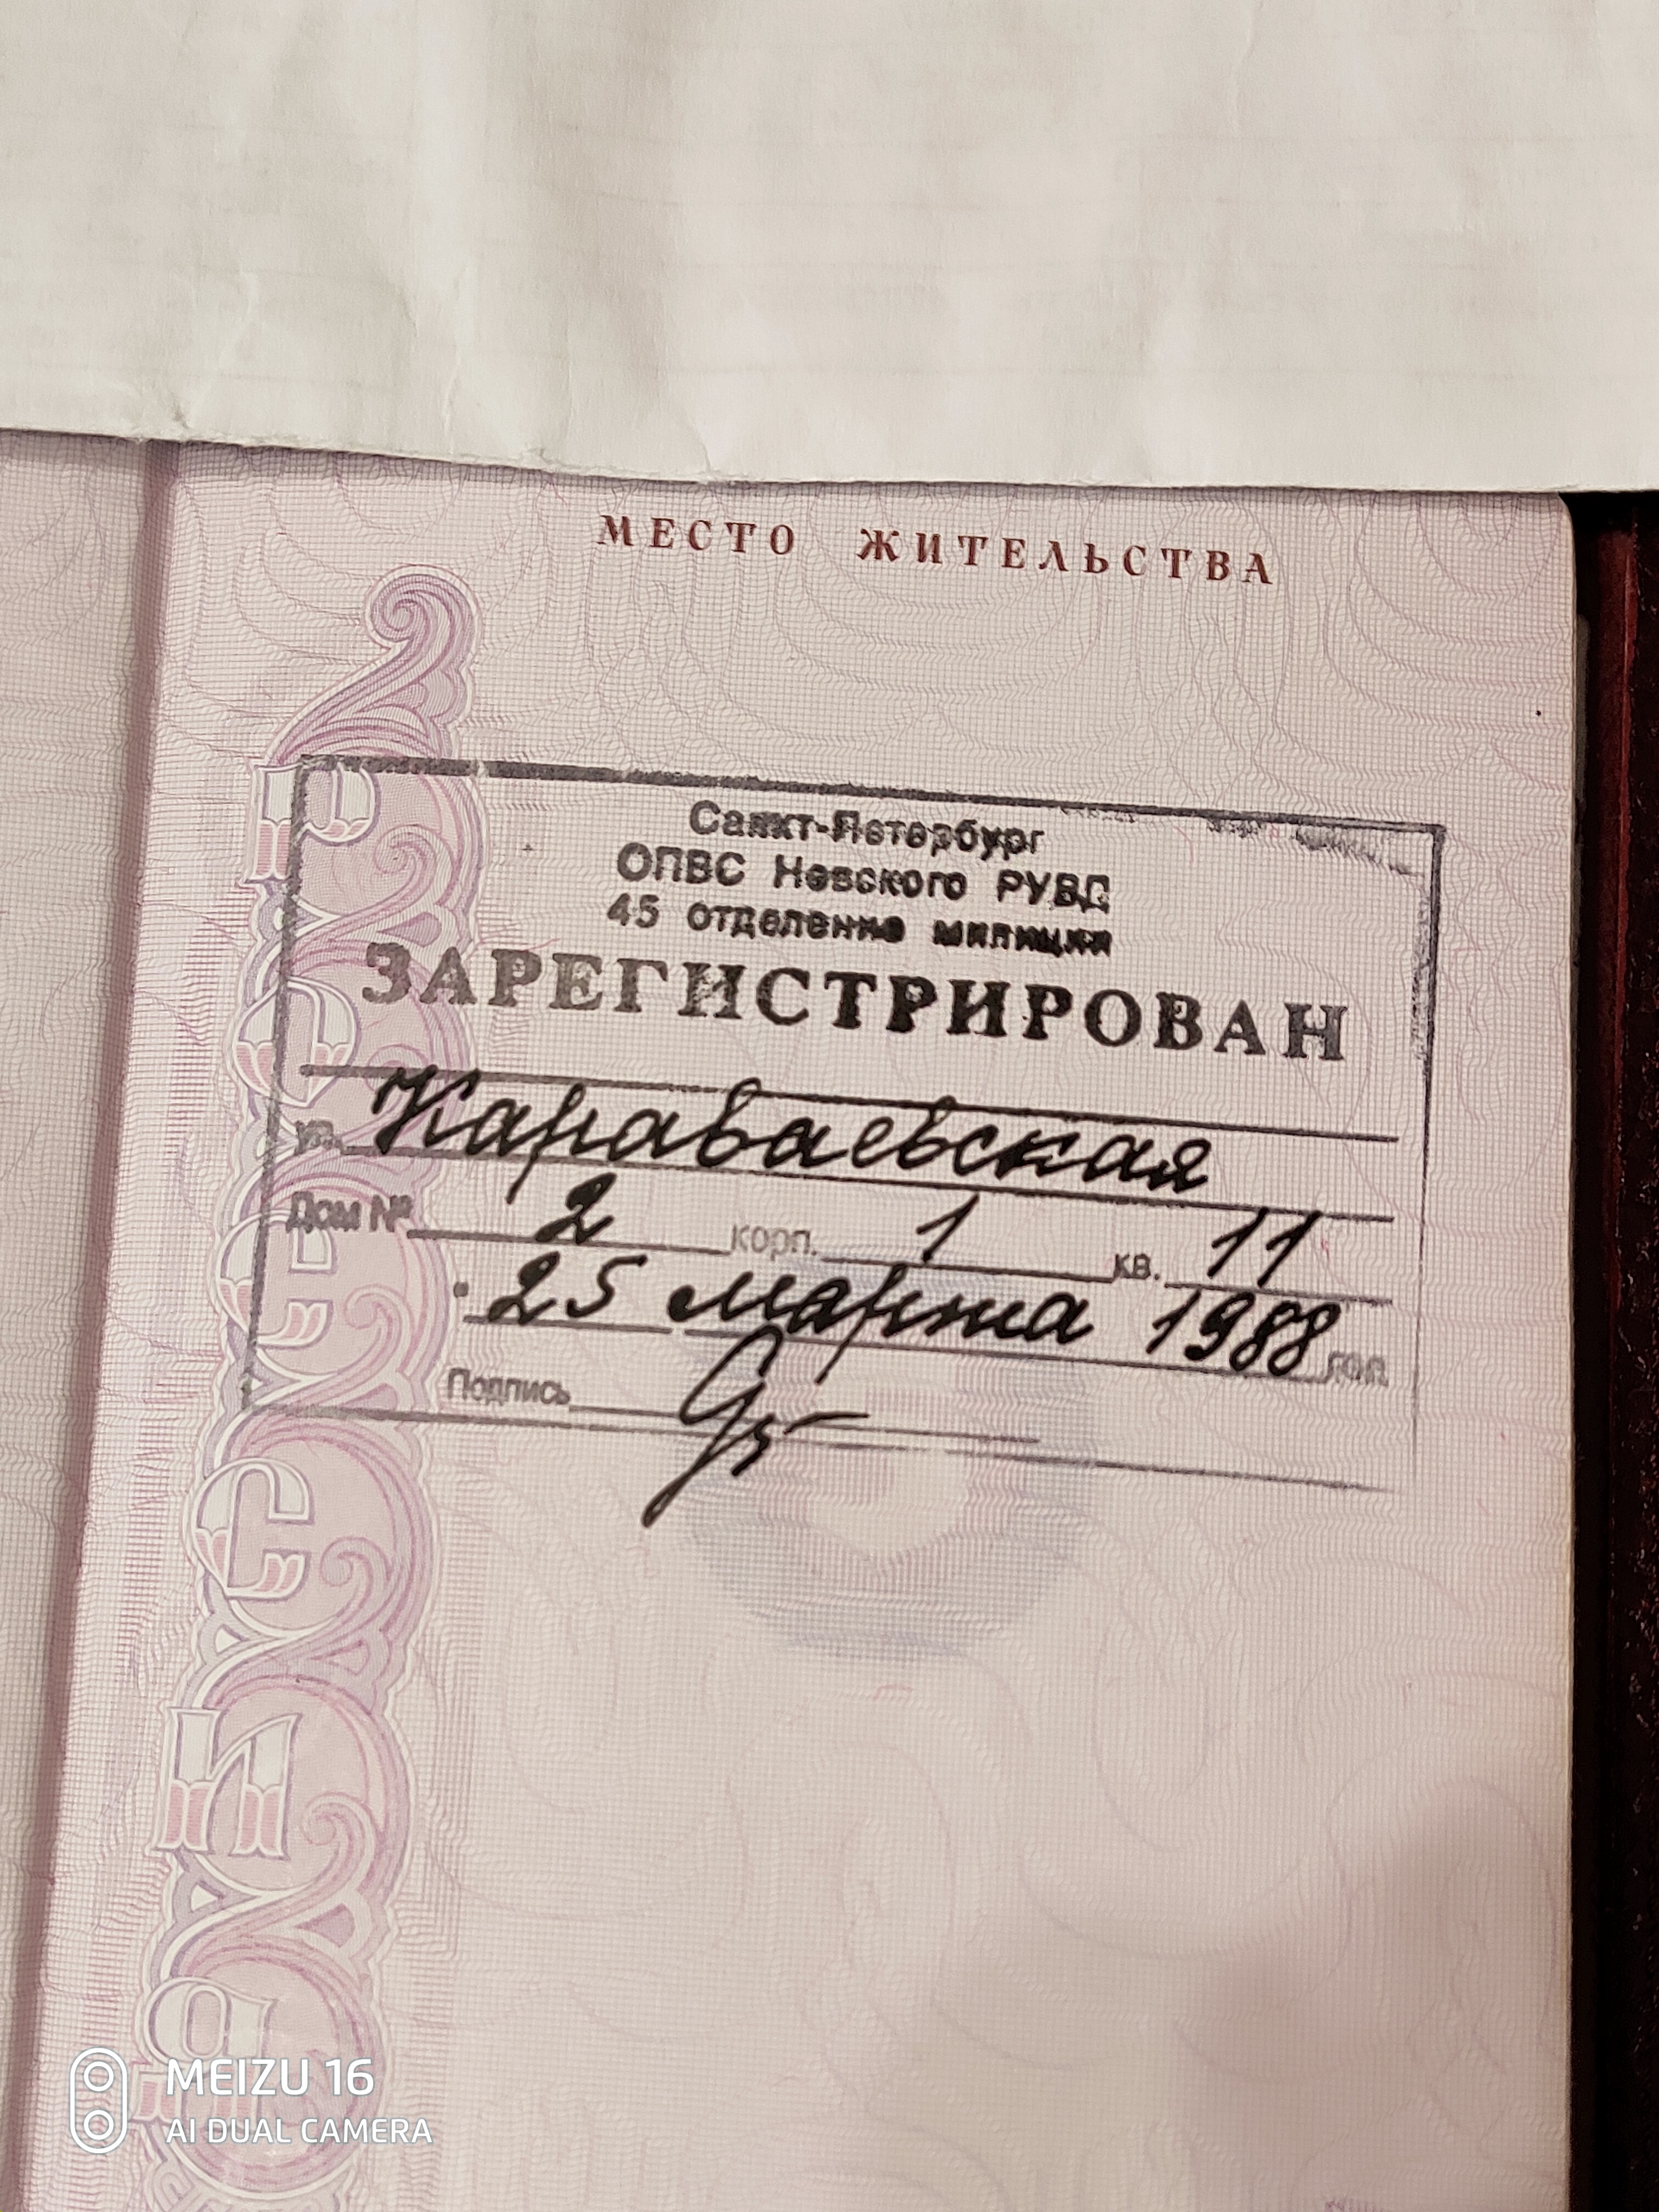 МЕСТО ЖИТЕЛЬСТВА
Санкт-Петербург
ОПВС Невского РУВД
45 отделение милиции
ЗАРЕГИСТРИРОВАН
ул. Караваевская
Дом № 2 корп. 1 кв. 11
25 марта 1988 год
Подпись
Россия
MEIZU 16
AI DUAL CAMERA